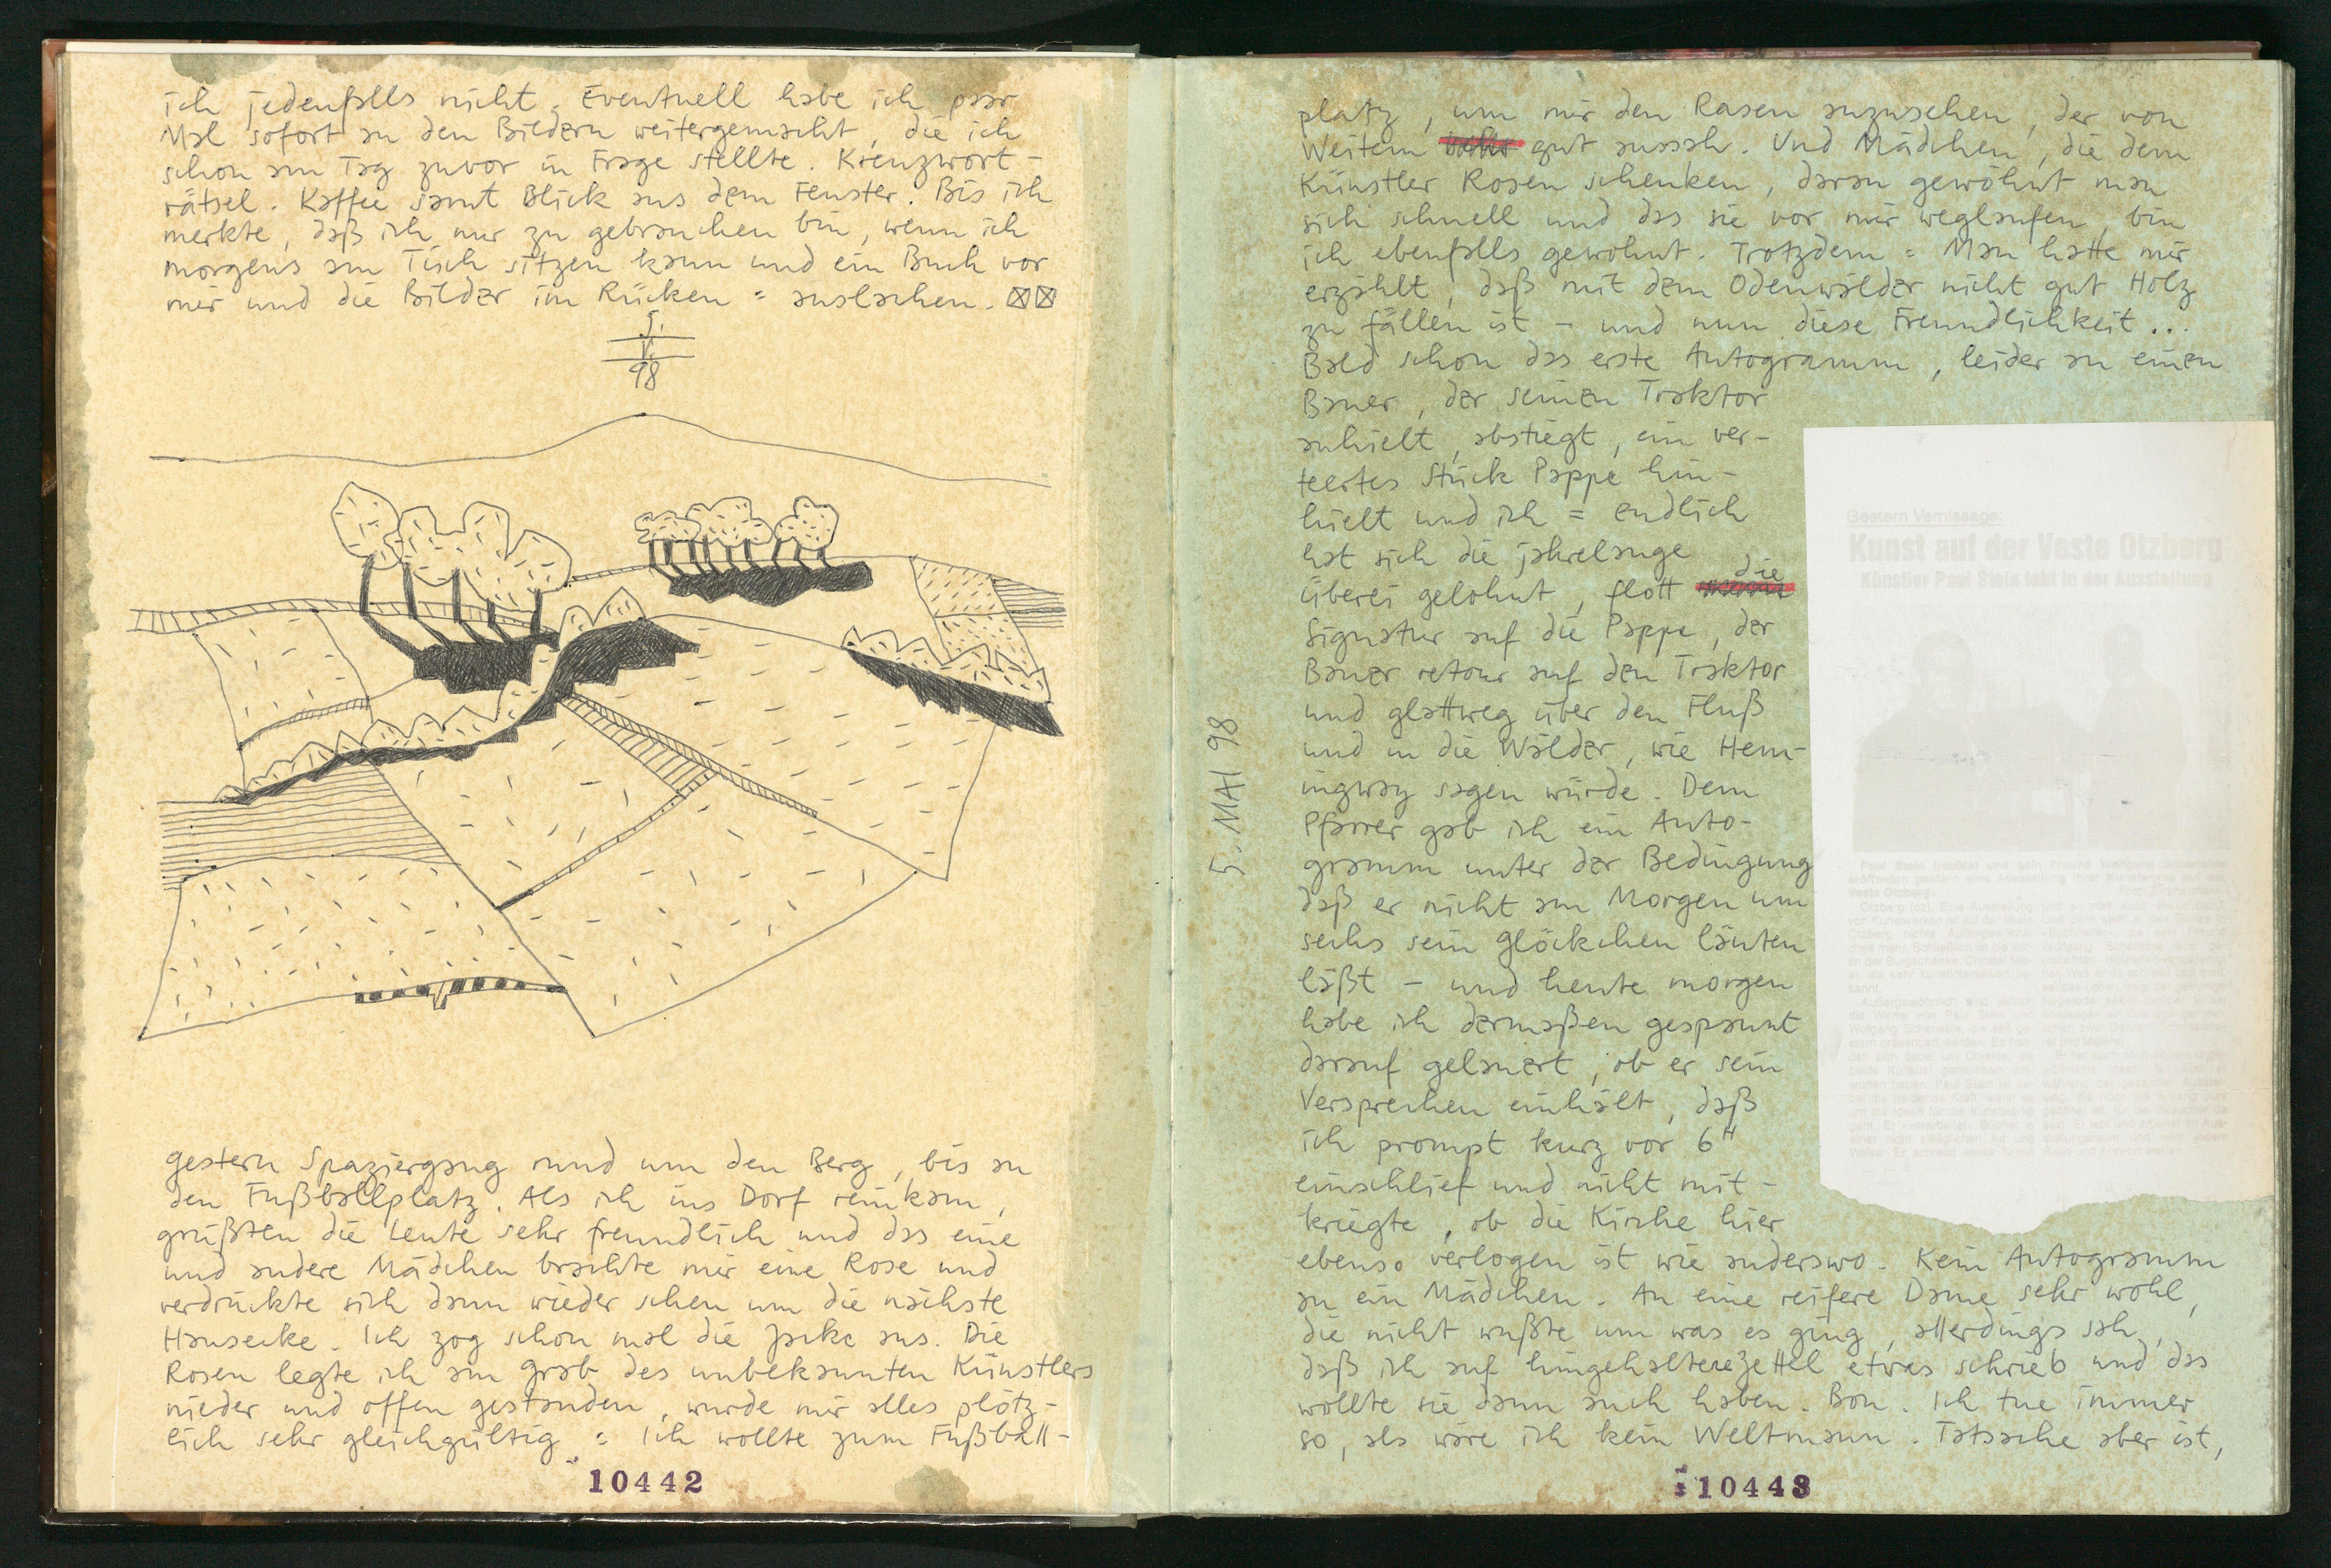 ich jedenfalls nicht. Eventuell habe ich paar
Mal sofort an den Bildern weitergemacht, die ich
schon am Tag zuvor in Frage stellte. Kreuzwort-
rätsel. Kaffee samt Blick aus dem Fenster. Bis ich
merkte, daß ich nur zu gebrauchen bin, wenn ich
morgens am Tisch sitzen kann und ein Buch vor
mir und die Bilder im Rücken = auslachen.
5.
V.
98
gestern Spaziergang rund um den Berg, bis an
den Fußballplatz. Als ich ins Dorf reinkam,
grüßten die Leute sehr freundlich und das eine
und andere Mädchen brachte mir eine Rose und
verdrückte sich dann wieder scheu um die nächste
Hausecke. Ich zog schon mal die Jacke aus. Die
Rosen legte ich am Grab des unbekannten Künstlers
nieder und offen gestanden, wurde mir alles plötz-
lich sehr gleichgültig = Ich wollte zum Fußball-
10442
platz, um mir den Rasen anzusehen, der von
Weitem gut aussah. Und Mädchen, die dem
Künstler Rosen schenken, daran gewöhnt man
sich schnell und das sie vor mir weglaufen bin
ich ebenfalls gewohnt. Trotzdem = Man hatte mir
erzählt, daß mit dem Odenwälder nicht gut Holz
zu fällen ist – und nun diese Freundlichkeit...
Bald schon das erste Autogramm, leider an einen
Bauer, der seinen Traktor
anhielt, abstiegt, ein ver-
teertes Stück Pappe hin-
hielt und ich = endlich
hat sich die jahrelange
überei gelohnt, flott die
Signatur auf die Pappe, der
Bauer retour auf den Traktor
und glattweg über den Fluß
und in die Wälder, wie Hem-
ingway sagen würde. Dem
Pfarrer gab ich ein Auto-
gramm unter der Bedingung
daß er nicht am Morgen um
sechs sein Glöckchen läuten
läßt – und heute morgen
habe ich dermaßen gespannt
darauf gelauert, ob er sein
Versprechen einhält, daß
ich prompt kurz vor 6ᴴ
einschlief und nicht mit-
kriegte, ob die Kirche hier
ebenso verlogen ist wie anderswo. Kein Autogramm
an ein Mädchen. An eine reifere Dame sehr wohl,
die nicht wußte um was es ging, allerdings sah,
daß ich auf hingehaltene Zettel etwas schrieb und das
wollte sie dann auch haben. Bon. Ich tue immer
so, als wäre ich kein Weltmann. Tatsache aber ist,
10443
5. MAI 98
Gestern Vernissage:
Kunst auf der Veste Otzberg
Künstler Paul Stein lebt in der